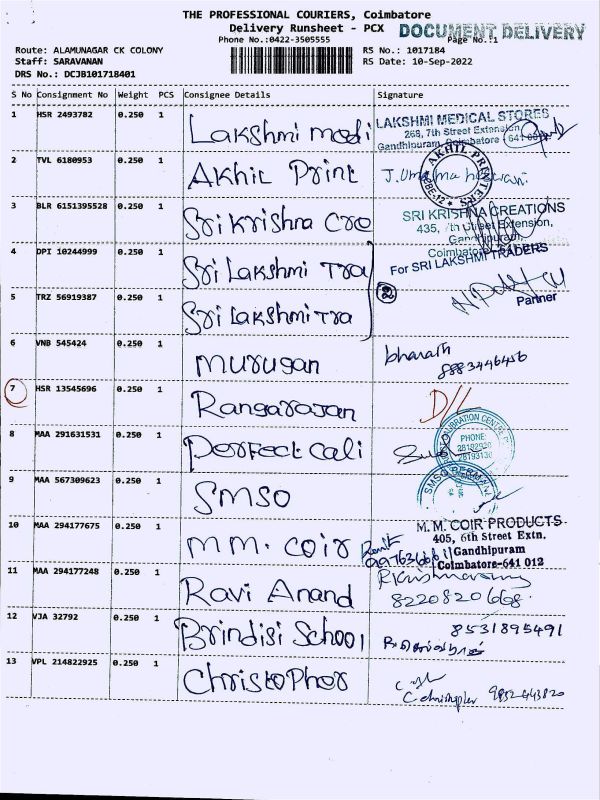 THE PROFESSIONAL COURIERS, Coimbatore
Delivery Runsheet - PCX
DOCUMENT DELIVERY
Phone No.:0422-3505555
Page No.:1
Route: ALAMUNAGAR CK COLONY
RS No.: 1017184
Staff: SARAVANAN
RS Date: 10-Sep-2022
DRS No.: DCJB101718401
S No Consignment No Weight PCS Consignee Details Signature
1 HSR 2493782 0.250 1 Lakshmi medi
LAKSHMI MEDICAL STORES
268, 7th Street Extension
Gandhipuram, Coimbatore 641
2 TVL 6180953 0.250 1 Akhil Print
AKHIL PRINTERS
CBE-12
3 BLR 6151395528 0.250 1 Sri Krishna Cre
SRI KRISHNA CREATIONS
435, 7th Street Extension,
Gandhipuram,
Coimbatore
4 DPI 10244999 0.250 1 Sri Lakshmi Tra
For SRI LAKSHMI TRADERS
2
Partner
5 TRZ 56919387 0.250 1 Sri Lakshmi Tra
6 VNB 545424 0.250 1 murugan
bharath
8883446456
7 HSR 13545696 0.250 1 Rangarajan
D/L
8 MAA 291631531 0.250 1 Perfect Cali
CALIBRATION CENTRE
PHONE:
9 MAA 567309623 0.250 1 SMSO
SMSO
10 MAA 294177675 0.250 1 M.M. Coir
M.M. COIR PRODUCTS
405, 6th Street Extn.
Gandhipuram
Coimbatore-641 012
11 MAA 294177248 0.250 1 Ravi Anand
8220820668
12 VJA 32792 0.250 1 Brindisi School
8531895491
13 VPL 214822925 0.250 1 Christopher
C. christopher 9852443820